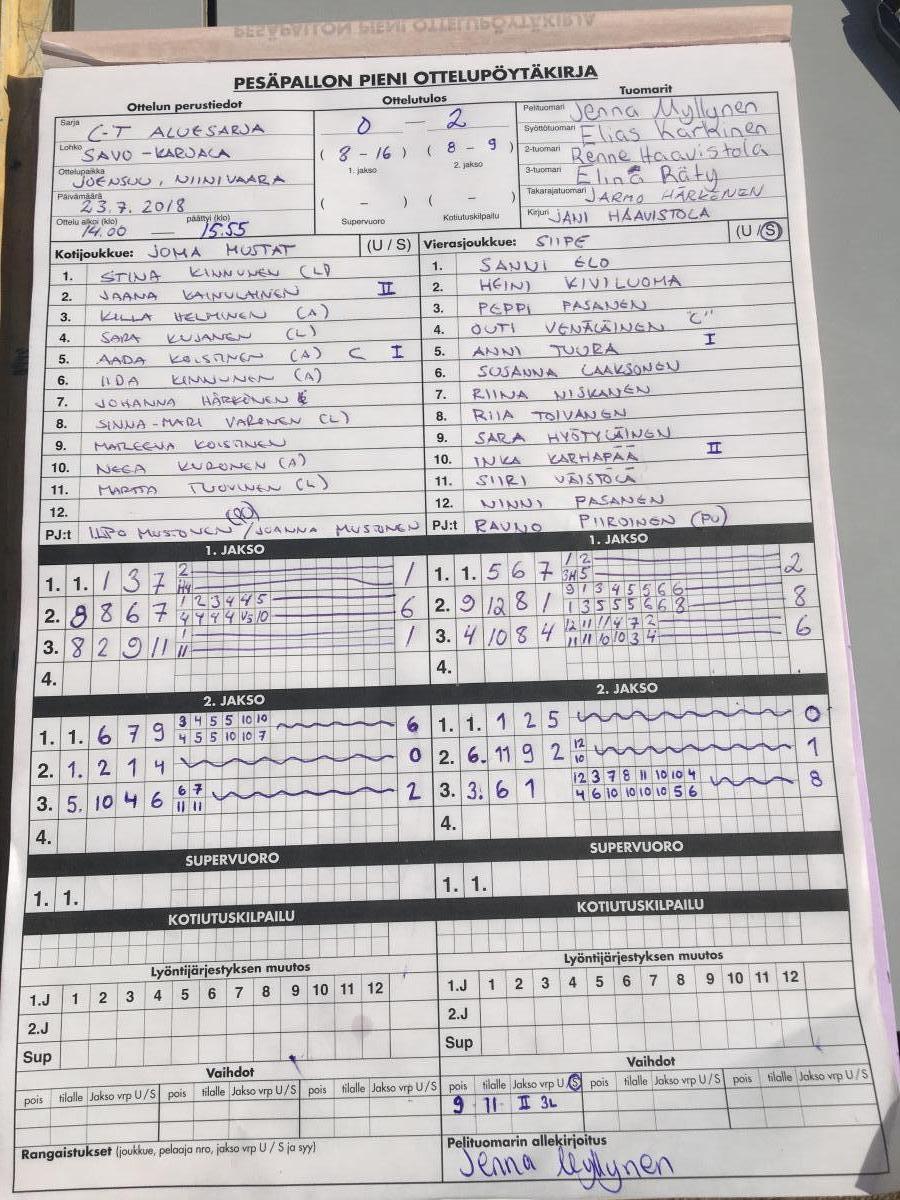 PESÄPALLON PIENI OTTELUPÖYTÄKIRJA
PESÄPALLON PIENI OTTELUPÖYTÄKIRJA
Ottelun perustiedot
Sarja C-T ALUESARJA
Lohko SAVO-KARJALA
Ottelupaikka JOENSUU, NIINIVAARA
Päivämäärä 23.7. 2018
Ottelu alkoi (klo) 14.00 — päättyi (klo) 15.55
Ottelutulos
0 — 2
( 8 - 16 ) ( 8 - 9 )
1. jakso 2. jakso
( - ) ( - )
Supervuoro Kotiutuskilpailu
Tuomarit
Pelituomari Jenna Myllynen
Syöttötuomari Elias Karkinen
2-tuomari Renne Haavistola
3-tuomari Elina Räty
Takarajatuomari JARMO HÄRKÖNEN
Kirjuri JANI HAAVISTOLA
Kotijoukkue: JOMA MUSTAT (U / S)
1. STINA KINNUNEN (L)
2. JAANA KAINULAINEN II
3. KILLA HELMINEN (A)
4. SARA KUJANEN (L)
5. AADA KOISTINEN (A) C I
6. IIDA KINNUNEN (A)
7. JOHANNA HÄRKÖNEN
8. SINNA-MARI VARONEN (L)
9. MARLEENA KOISTINEN
10. NEEA KURONEN (A)
11. MARTTA TUOVINEN (L)
12.
PJ:t ILPO MUSTONEN / JOANNA MUSTONEN
Vierasjoukkue: SIIPE (U / S)
1. SANNI ELO
2. HEINI KIVILUOMA
3. PEPPI PASANEN
4. OUTI VENÄLÄINEN "C"
5. ANNI TUURA I
6. SUSANNA LAAKSONEN
7. RIINA NISKANEN
8. RIIA TOIVANEN
9. SARA HYÖTYLÄINEN
10. INKA KARHAPÄÄ II
11. SIIRI VÄISTÖLÄ
12. NINNI PASANEN
PJ:t RAUNO PIIROINEN (PV)
1. JAKSO
1. 1. 1 3 7 2 1
2. 9 8 6 7 1 2 3 4 4 5 6
4 4 4 4 V5 10
3. 8 2 9 11 1 1
11
4.
1. JAKSO
1. 1. 5 6 7 1 2 2
3H 5
2. 9 12 8 1 9 1 3 4 5 5 6 6 8
1 3 5 5 5 6 6 8
3. 4 10 8 4 12 11 11 4 7 2 6
11 11 10 10 3 4
4.
2. JAKSO
1. 1. 6 7 9 3 4 5 5 10 10 6
4 5 5 10 10 7
2. 1. 2 1 4 0
3. 5. 10 4 6 6 7 2
11 11
4.
2. JAKSO
1. 1. 1 2 5 0
2. 6. 11 9 2 12 1
10
3. 3. 6 1 12 3 7 8 11 10 10 4 8
4 6 10 10 10 10 5 6
4.
SUPERVUORO
1. 1.
SUPERVUORO
1. 1.
KOTIUTUSKILPAILU
KOTIUTUSKILPAILU
Lyöntijärjestyksen muutos
1.J 1 2 3 4 5 6 7 8 9 10 11 12
2.J
Sup
Lyöntijärjestyksen muutos
1.J 1 2 3 4 5 6 7 8 9 10 11 12
2.J
Sup
Vaihdot
pois tilalle Jakso vrp U / S pois tilalle Jakso vrp U / S pois tilalle Jakso vrp U / S
Vaihdot
pois tilalle Jakso vrp U / S pois tilalle Jakso vrp U / S pois tilalle Jakso vrp U / S
9 11 II 3L
Rangaistukset (joukkue, pelaaja nro, jakso vrp U / S ja syy)
Pelituomarin allekirjoitus
Jenna Myllynen